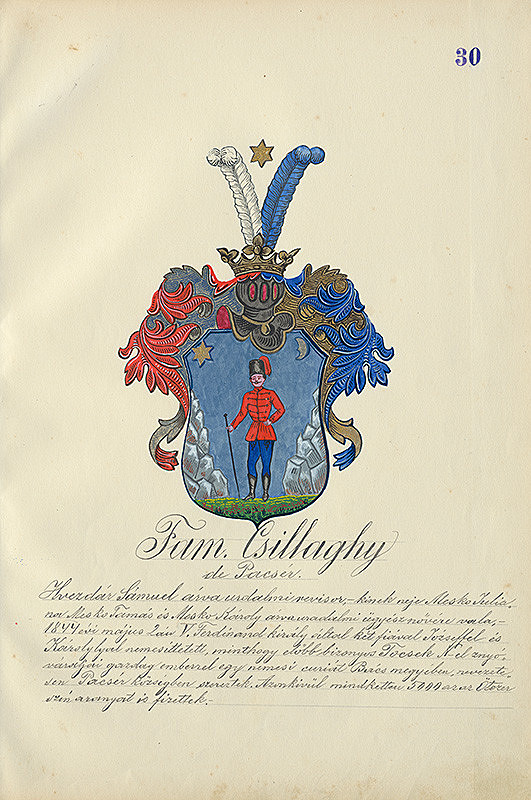 30
Fam. Csillaghy
de Pacsér.
Hvezdár Sámuel árva uradalmi revisor, – kinek neje Mesko Julia-
na Mesko Tamás és Mesko Károly árva uradalmi ügyész nővere vala, –
1844 évi május V. Ferdinand király által két fiával Jozseffel és
Károlylyal nemesittetett, minthogy előbb bizonyos Tocsek N-el znyó-
váraljai gazdag emberrel egy nemesi curiát Bács megyében, nevezete-
sen Pacsér községben szereztek. Azonkivül mindketten 5000 azaz Ötezer
aranyat is fizettek. –